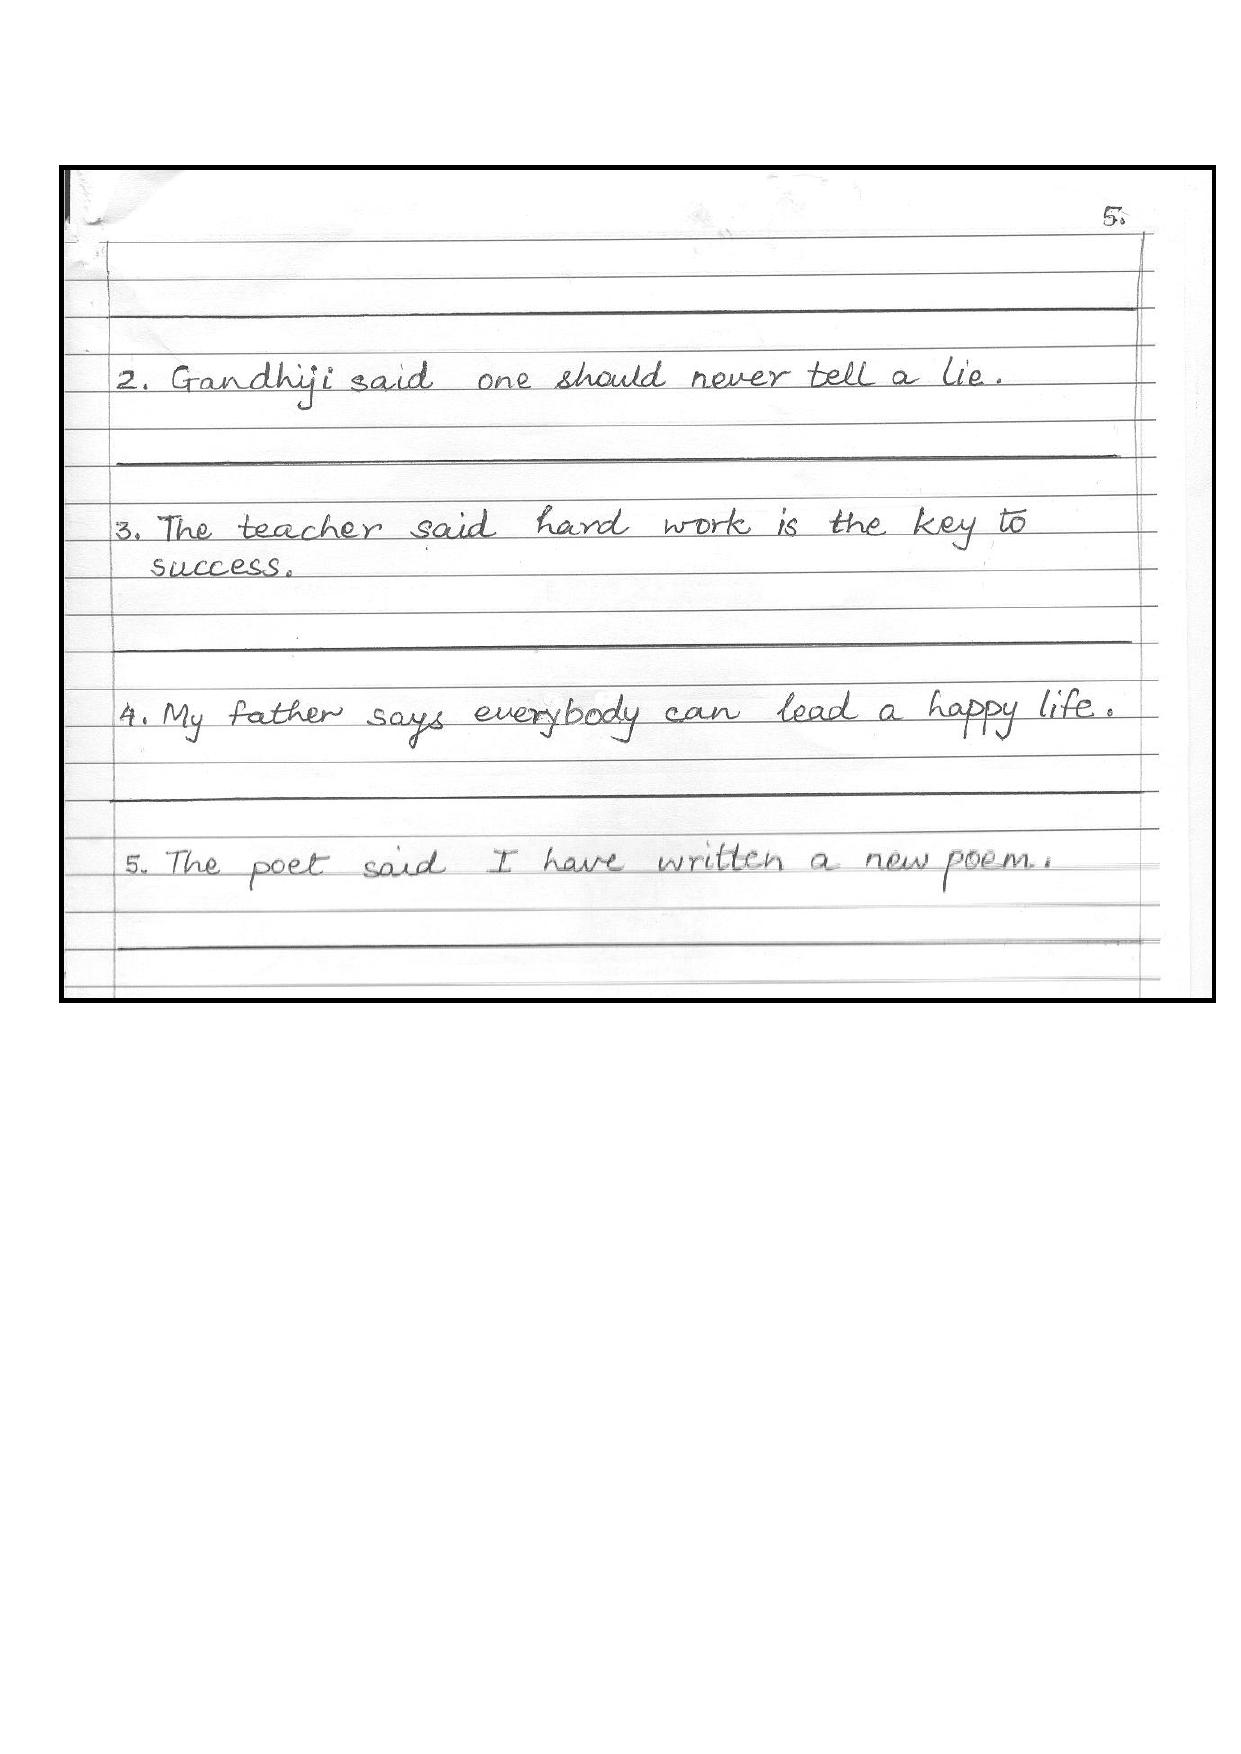 5.
2. Gandhiji said one should never tell a lie.
3. The teacher said hard work is the key to
success.
4. My father says everybody can lead a happy life.
5. The poet said I have written a new poem.